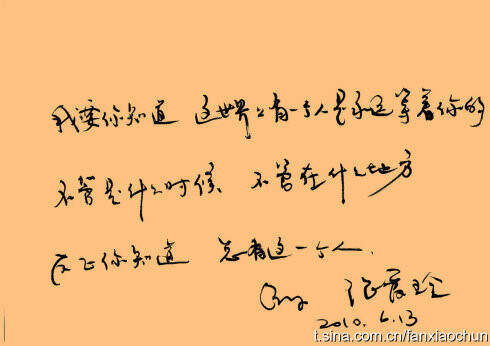 我要你知道 这世界上有一个人是永远等着你的
不管是什么时候、不管在什么地方
反正你知道 总有这一个人.
2010.6.13
t.sina.com.cn/fanxiaochun